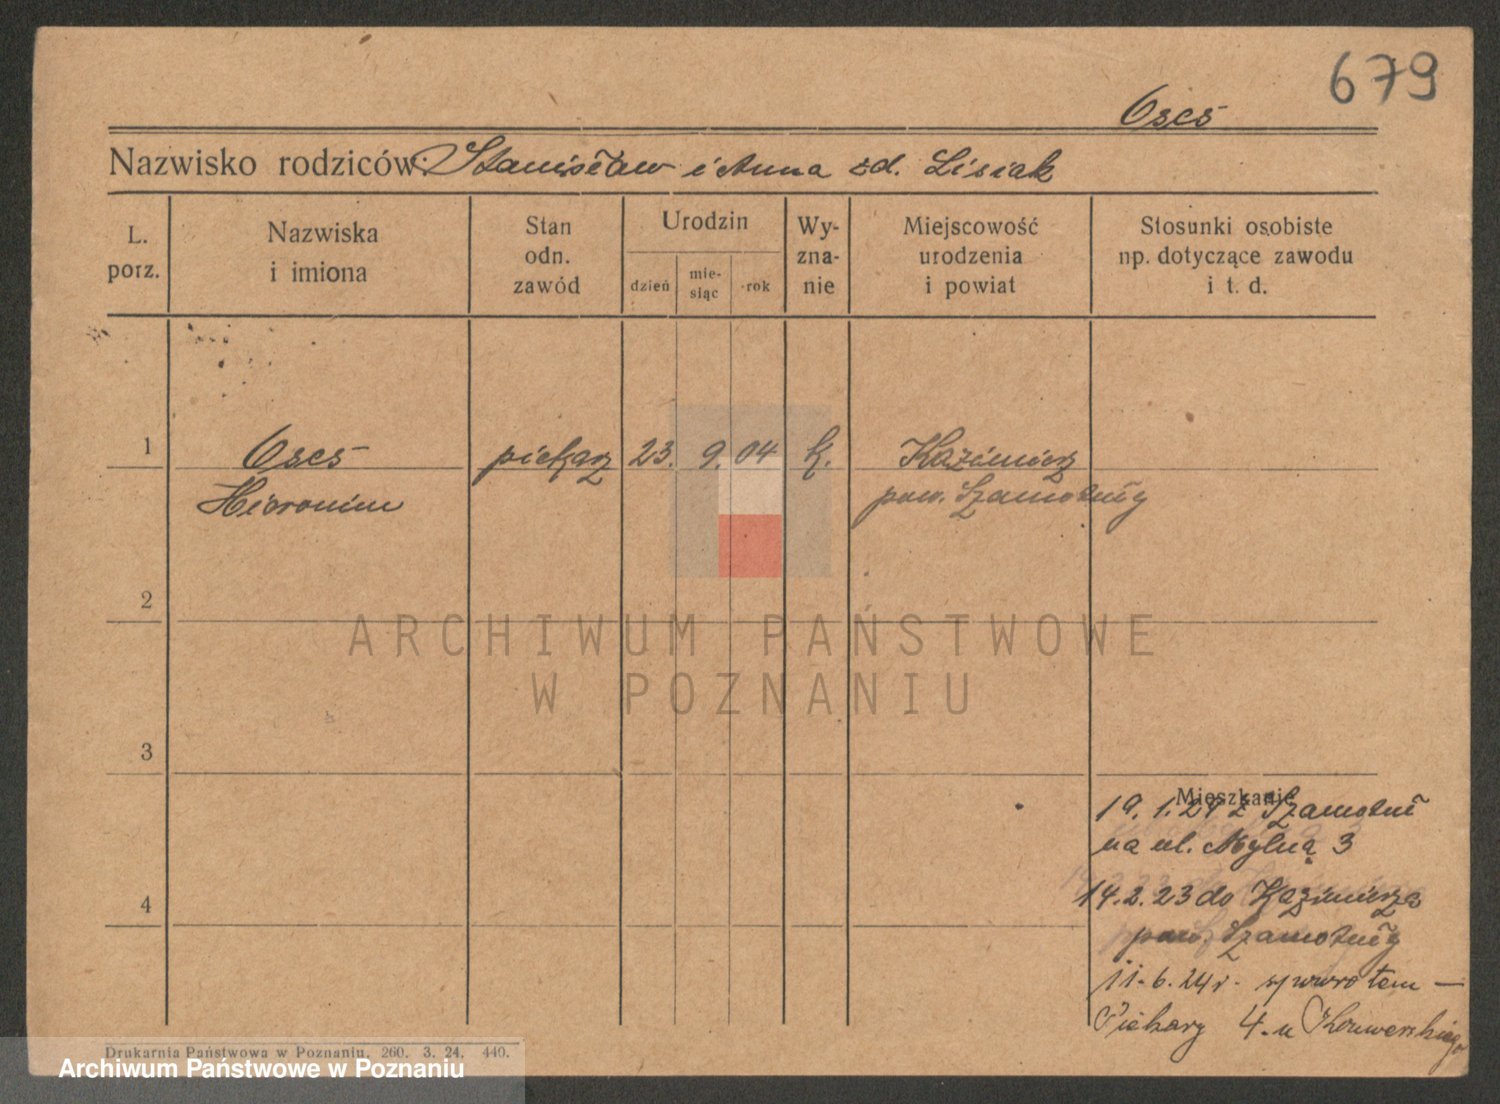 679
Oses
Nazwisko rodziców: Stanisław i Anna zd. Lisiak
L. porz.
Nazwiska i imiona
Stan odn. zawód
Urodzin
dzień
mie- siąc
rok
Wy- zna- nie
Miejscowość urodzenia i powiat
Stosunki osobiste np. dotyczące zawodu i t. d.
1 Oses piekarz 23. 9. 04 k. Kaźmierz
Hieronim pow. Szamotuły
2
ARCHIWUM PAŃSTWOWE
W POZNANIU
3
Mieszkanie
19. 1. z Szamotuł
na ul. Mylną 3
14. 2. 23 do Kaźmierza
4
pow. Szamotuły
11. 6. 24 r. spowrotem —
Piekary 4. u
Drukarnia Państwowa w Poznaniu. 260. 3. 24. 440.
Archiwum Państwowe w Poznaniu